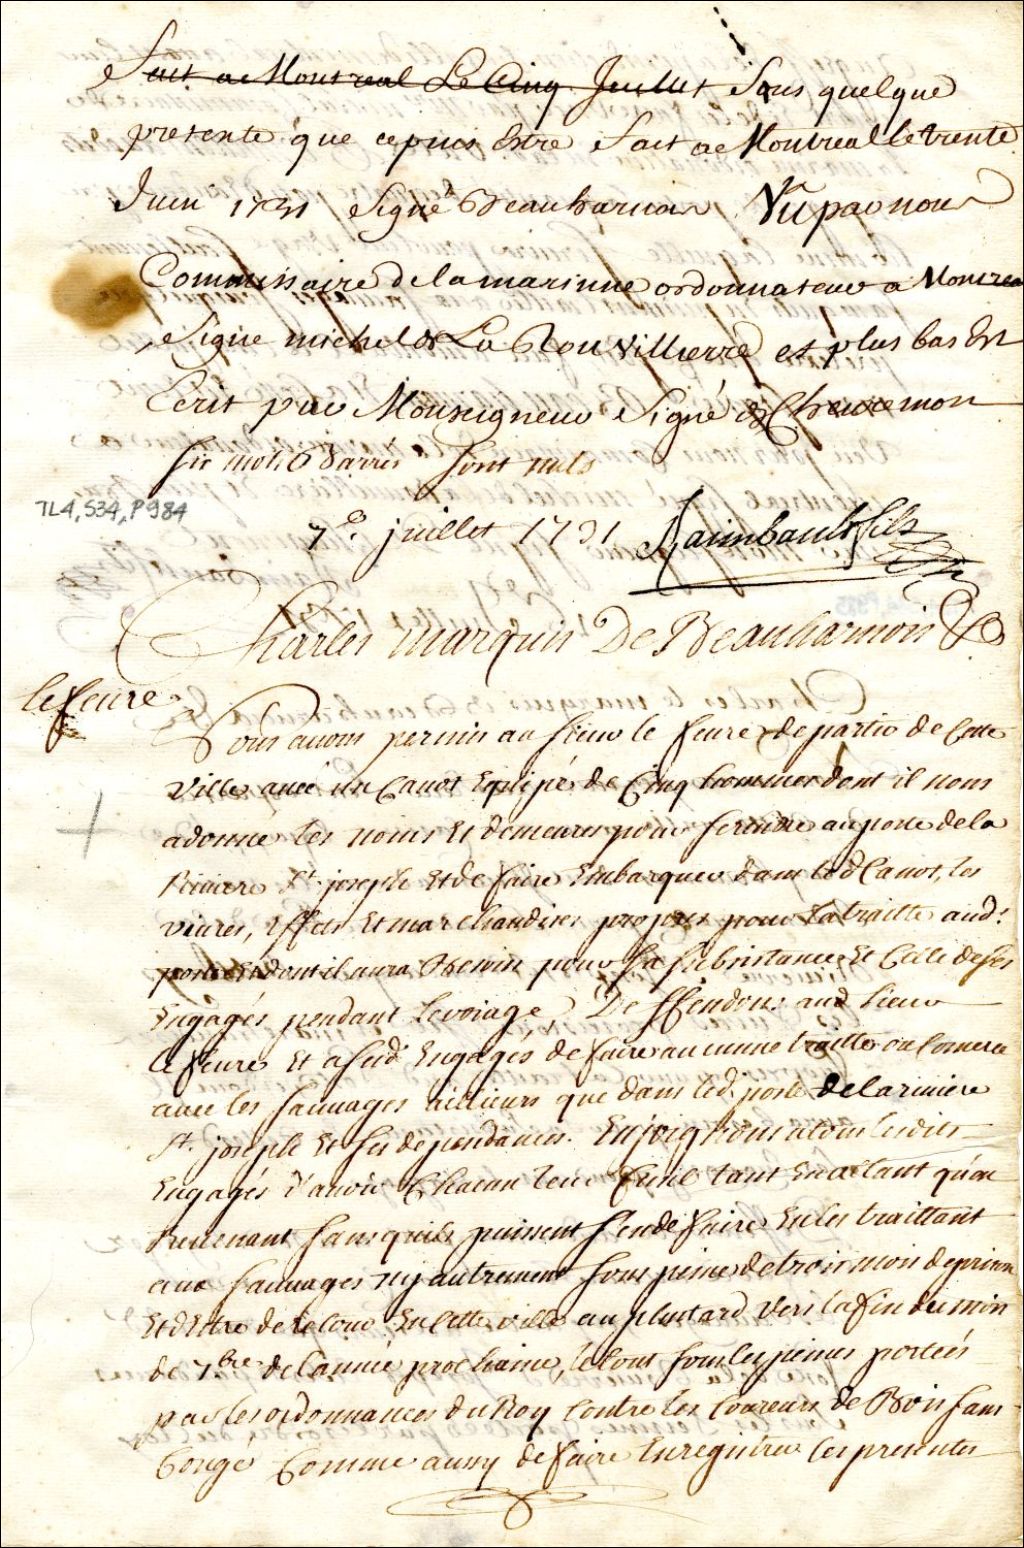 Fait a Montreal Le Cinq Jeuillet Sous quelque
pretexte que cepuis Estre fait a Montreal le trente
Juin 1731 Signé Beauharnois Vû par nous
Commissaire de la marinne ordonnateur a Montreal
Signé michel de La Rouvillierre et plus bas Est
Ecrit par Monseigneur Signé de Chevremon
six mots Barrés sont nuls
TL4, S34, P984
7e. juillet 1731 Raimbault fils
Charles marquis De Beauharnois &
le feure
Nous avons permis au sieur le feure departir de Cette
Ville avec un Canot Equipé de Cinq hommes dont il nous
adonné les noms Et demeures pour serendre auposte dela
Riviere St. joseph Et de faire Embarquer dans led Canot, les
vivres, Effets Et marchandises propres pour la traitte aud:
poste Et dont il aura Besoin pour sa subsistance Et Celle deses
Engagés pendant levoiage, Deffendons aud sieur
le feure Et asesd Engagés de faire aucunne traitte ou Comerce
avec les sauvages ailleurs que dans led: poste dela riviere
St. joseph Et ses dependances. Enjoignons atous lesdits
Engagés d'avoir Chacun leur fusil tant En allant qu'en
Revenant sans quils puissent s'en defaire En les traittant
aux sauvages ny autrement sous peine de trois mois deprison
Et d'Etre de retour En Cette ville au plustard vers la fin du mois
de 7bre de l'année prochaine, le tout sous les peines portées
par les ordonnances du Roy Contre les Coureurs de Bois sans
Congé Comme aussy de faire Enregistrer les presentes